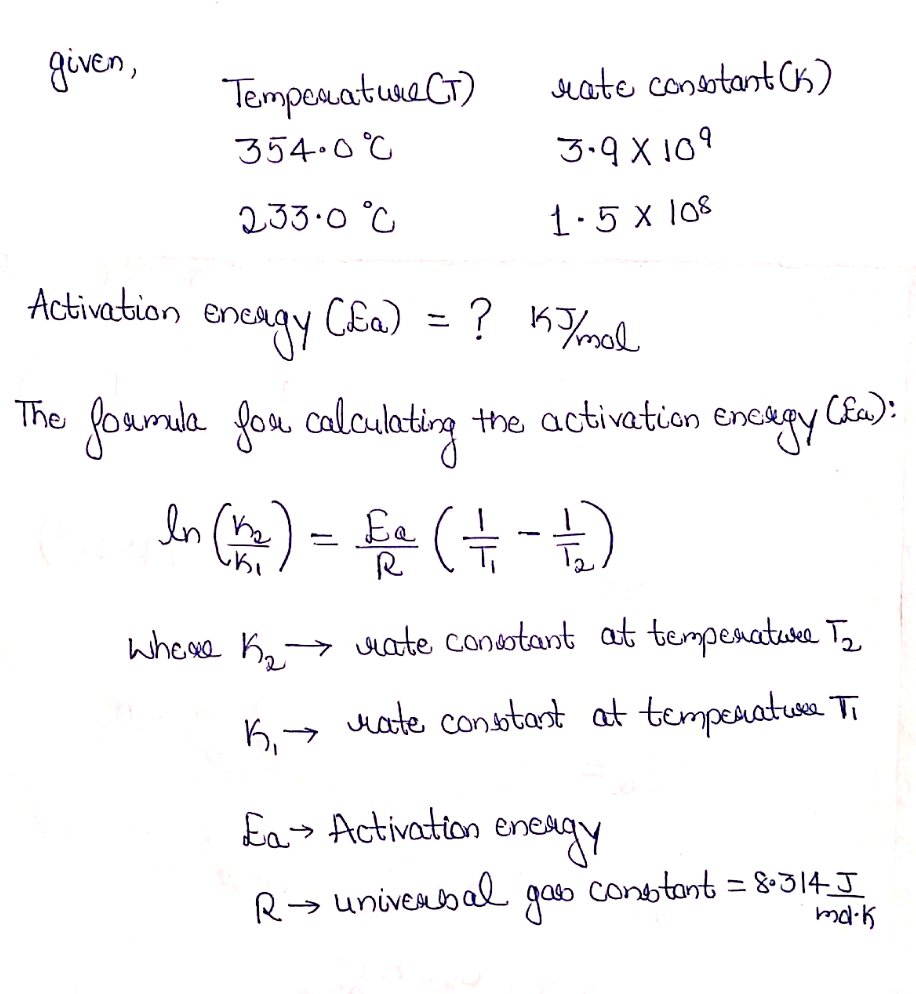 given,
Temperature(T) rate constant(K)
354.0 °C 3.9 X 10⁹
233.0 °C 1.5 X 10⁸
Activation energy (Ea) = ? KJ/mol
The formula for calculating the activation energy (Ea):
ln (K₂/K₁) = Ea/R (1/T₁ - 1/T₂)
Where K₂ → rate constant at temperature T₂
K₁ → rate constant at temperature T₁
Ea → Activation energy
R → universal gas constant = 8.314 J/mol·K